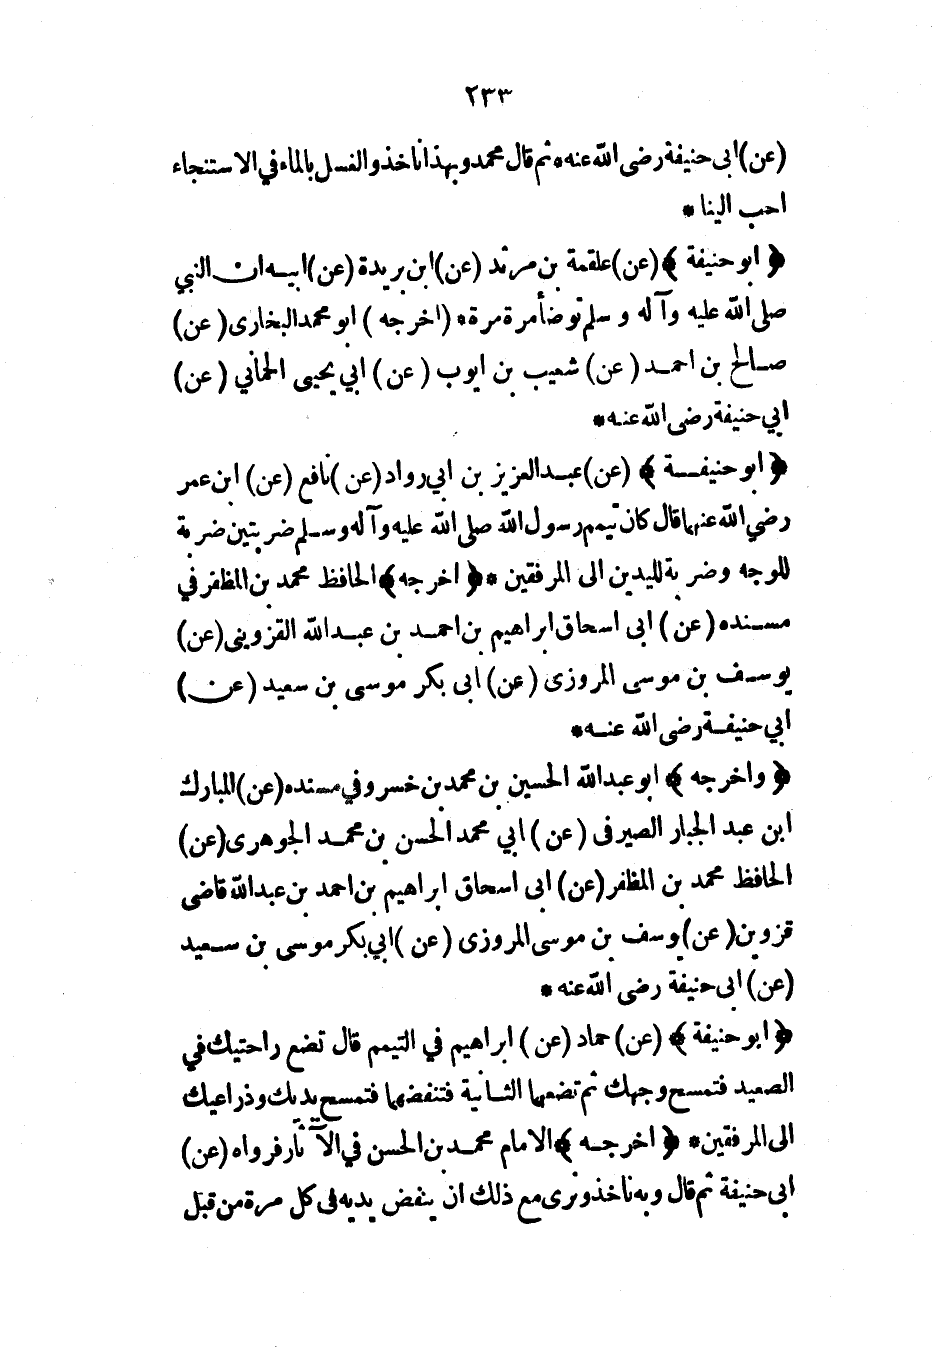 ٢٣٣
(عن) ابى حنيفة رضى الله عنه * ثم قال محمد وبهذا نأخذ والغسل بالماء في الاستنجاء
احب الينا *
﴿ ابو حنيفة ﴾ (عن) علقمة بن مرثد (عن) ابن بريدة (عن) ابيه ان النبي
صلى الله عليه وآله وسلم توضأ مرة مرة * (اخرجه) ابو محمد البخارى (عن)
صالح بن احمد (عن) شعيب بن ايوب (عن) ابي يحيى الحماني (عن)
ابي حنيفة رضى الله عنه *
﴿ ابو حنيفة ﴾ (عن) عبد العزيز بن ابي رواد (عن) نافع (عن) ابن عمر
رضي الله عنهما قال كان تيمم رسول الله صلى الله عليه وآله وسلم ضربتين ضربة
للوجه وضربة لليدين الى المرفقين * ﴿ اخرجه ﴾ الحافظ محمد بن المظفر في
مسنده (عن) ابى اسحاق ابراهيم بن احمد بن عبد الله القزوينى (عن)
يوسف بن موسى المروزى (عن) ابى بكر موسى بن سعيد (عن)
ابي حنيفة رضى الله عنه *
﴿ واخرجه ﴾ ابو عبد الله الحسين بن محمد بن خسرو في مسنده (عن) المبارك
ابن عبد الجبار الصيرفى (عن) ابي محمد الحسن بن محمد الجوهرى (عن)
الحافظ محمد بن المظفر (عن) ابى اسحاق ابراهيم بن احمد بن عبد الله قاضى
قزوين (عن) يوسف بن موسى المروزى (عن) ابي بكر موسى بن سعيد
(عن) ابى حنيفة رضى الله عنه *
﴿ ابو حنيفة ﴾ (عن) حماد (عن) ابراهيم في التيمم قال تضع راحتيك في
الصعيد فتمسح وجهك ثم تضعها الثانية فتنفضها فتمسح يديك وذراعيك
الى المرفقين * ﴿ اخرجه ﴾ الامام محمد بن الحسن في الآثار فرواه (عن)
ابى حنيفة ثم قال وبه نأخذ ونرى مع ذلك ان ينفض يديه فى كل مرة من قبل